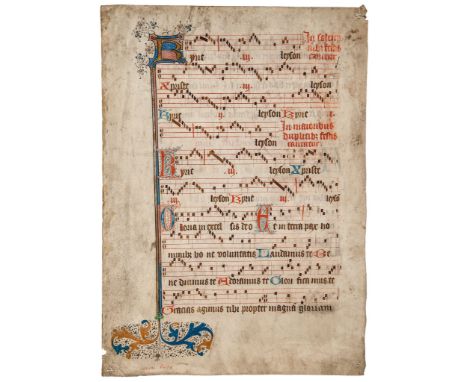 In solem
Kyrie iij. leyson
Xpriste leyson
Kyrie ij. leyson
In maioribus
duplicibz festis
cantatur.
Kyrie iij. leyson Xpriste
iij. leyson Kyrie iij. leyso
Gloria in excel sis deo Et in terra pax ho
minibz bo ne voluntatis Laudamus te Be
ne dicimus te Adoramus te Glori ficamus te
Gracias agimus tibi propter magnā gloriam